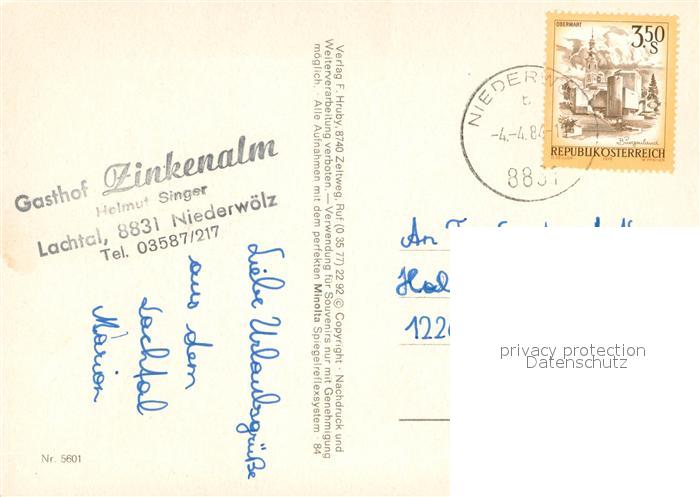 Gasthof Zinkenalm
Helmut Singer
Lachtal, 8831 Niederwölz
Tel. 03587/217
Liebe Urlaubsgrüße
aus dem
Lachtal
Marion
Nr. 5601
Verlag F. Hruby, 8740 Zeltweg, Ruf (0 35 77) 22 92 © Copyright · Nachdruck und
Weiterverarbeitung verboten. — Verwendung für Souvenirs nur mit Genehmigung
möglich. · Alle Aufnahmen mit dem perfekten Minolta Spiegelreflexsystem · 84
NIEDERW
-4.-4.84-1
8831
OBERWART
3,50
S
Burgenland
REPUBLIK ÖSTERREICH
An
122
privacy protection
Datenschutz